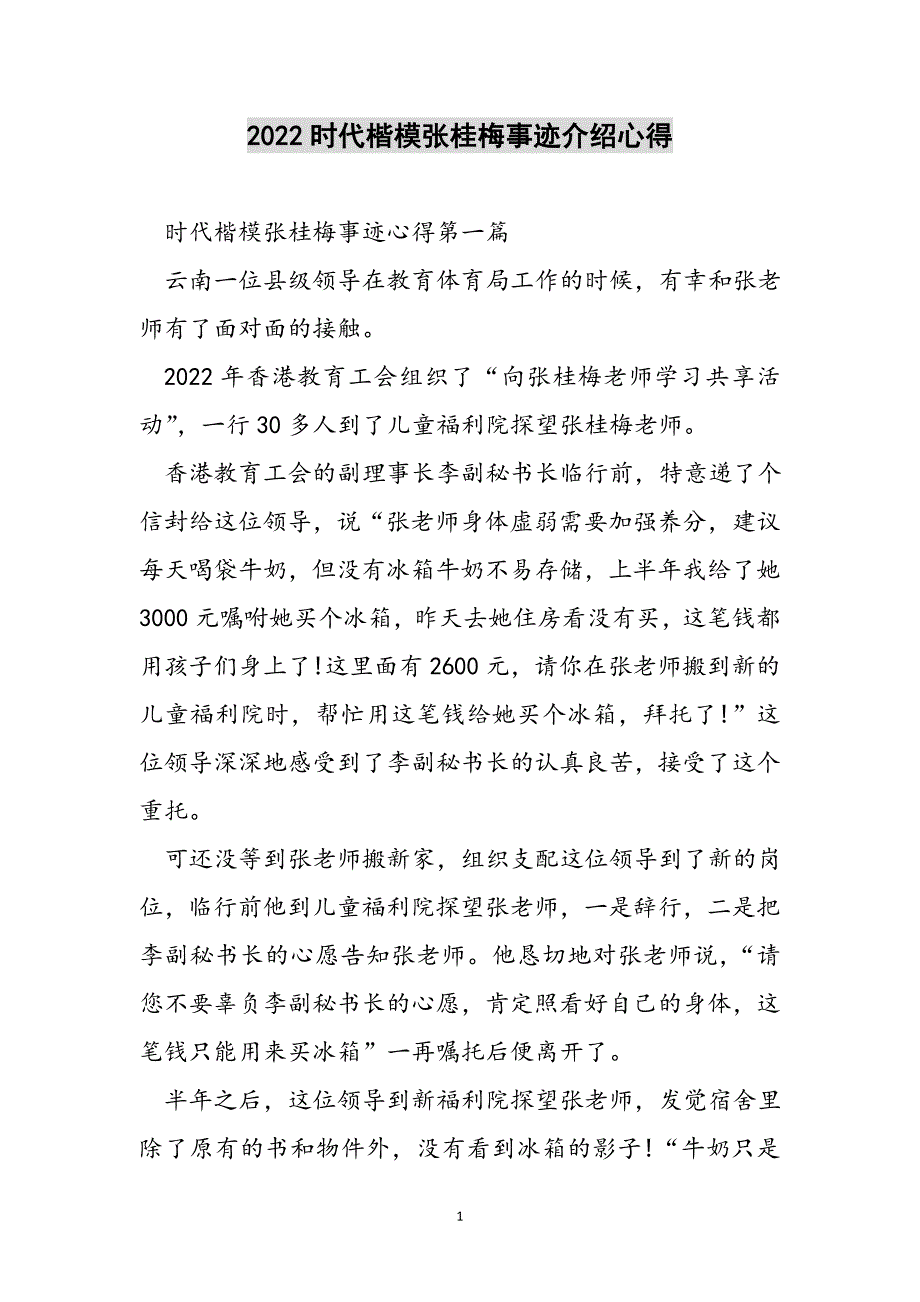 2022时代楷模张桂梅事迹介绍心得
时代楷模张桂梅事迹心得第一篇
云南一位县级领导在教育体育局工作的时候，有幸和张老
师有了面对面的接触。
2022年香港教育工会组织了“向张桂梅老师学习共享活
动”，一行30多人到了儿童福利院探望张桂梅老师。
香港教育工会的副理事长李副秘书长临行前，特意递了个
信封给这位领导，说“张老师身体虚弱需要加强养分，建议
每天喝袋牛奶，但没有冰箱牛奶不易存储，上半年我给了她
3000元嘱咐她买个冰箱，昨天去她住房看没有买，这笔钱都
用孩子们身上了!这里面有2600元，请你在张老师搬到新的
儿童福利院时，帮忙用这笔钱给她买个冰箱，拜托了!”这
位领导深深地感受到了李副秘书长的认真良苦，接受了这个
重托。
可还没等到张老师搬新家，组织支配这位领导到了新的岗
位，临行前他到儿童福利院探望张老师，一是辞行，二是把
李副秘书长的心愿告知张老师。他恳切地对张老师说，“请
您不要辜负李副秘书长的心愿，肯定照看好自己的身体，这
笔钱只能用来买冰箱”一再嘱托后便离开了。
半年之后，这位领导到新福利院探望张老师，发觉宿舍里
除了原有的书和物件外，没有看到冰箱的影子!“牛奶只是
1